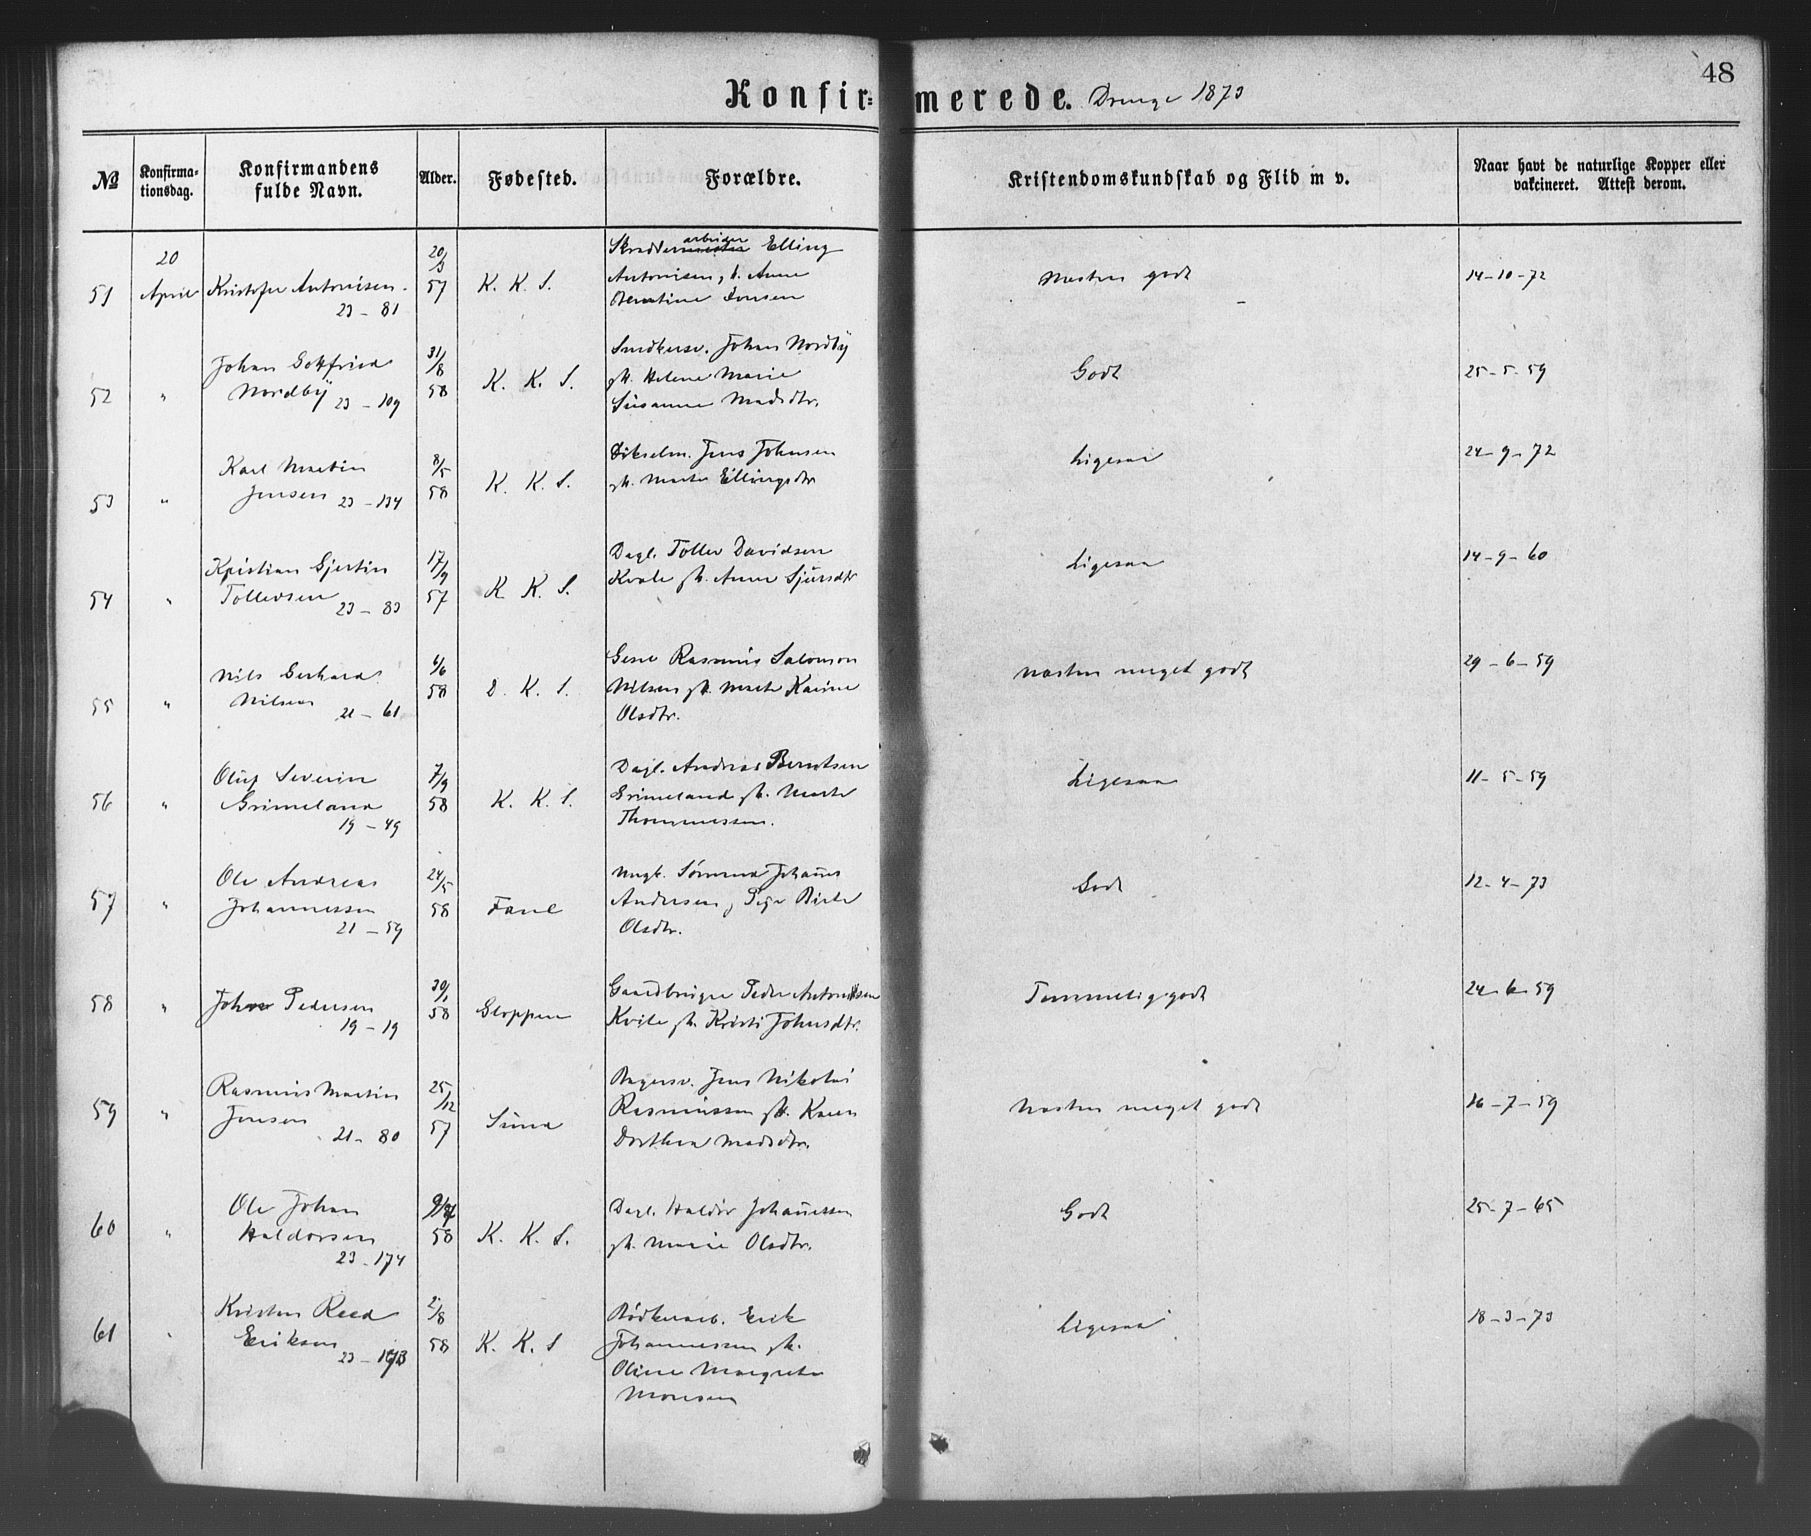 Konfir= merede. Drenge 1873
48
№ Konfirma-tionsdag. Konfirmandens fulde Navn. Alder. Fødested. Forældre. Kristendomskundskab og Flid m v. Naar havt de naturlige Kopper eller vakcineret. Attest derom.
20 20/3 Skrædder arbeider Elling
51 April Kristofer Antonisen. 57 K. K. S. Antonisen, Anne Næsten godt 14-10-72
23 - 81 Jonsen
Johan Gotfried 31/8 Snedkersv. Johan Nordby
52 " Nordby 58 K. K. S. gk. Helene Marie Godt 25-5-59
23 - 109 Susanne Madsdtr.
Karl Martin 8/5 Jens Johnsen Ligesaa 24-9-72
53 " Jensen 23 - 134 58 K. K. S. gk. Marte Ellingsdtr
Kristian Gjertin 17/9 Dagl. Tollev Davidsen
54 " Tollevsen 57 K K. S. Kvale gk. Anna Sjursdtr Ligesaa 14-9-60
23 - 83
Nils Gerhard 6/6 Rasmus Salomon
55 " Nilsen 58 D. K. S. Nilsen gk. Marte Karine Næsten meget godt 29-6-59
21 - 61 Olsdtr.
Oluf Severin 7/9 Dagl. Andreas Berntsen
56 " Grimeland 58 K. K. S. Grimeland gk. Marte Ligesaa 11-5-59
19 - 49 Thommessen.
Ole Andreas 24/5 Ungk. Sømand Johannes
57 " Johannessen 58 Fane Andersen, Pige Birte Godt 12-4-73
21 - 59 Olsdtr.
58 " Pedersen 30/1 58 Gloppen Gaardbruger Peder Antonisen Temmelig godt 24-6-59
19 - 19 Kvile gk. Kristi Johnsdtr.
Rasmus Martin 25/12 Bagersv. Jens Nikolai
59 " Jensen 57 Sund Rasmussen gk. Karen Næsten meget godt 16-7-59
21 - 80 Dorthea Madsdtr.
Ole Johan Dagl. Haldor Johannessen
60 " Haldorsen 58 K. K. S. gk. Marie Olsdtr. Godt 25-7-65
23 - 174
Kristen Reed 2/8 Bødkerarb. Erik
61 " Eriksen 58 K. K. S Johannessen gk. Ligesaa 18-3-73
Oline Margrete
Monsen